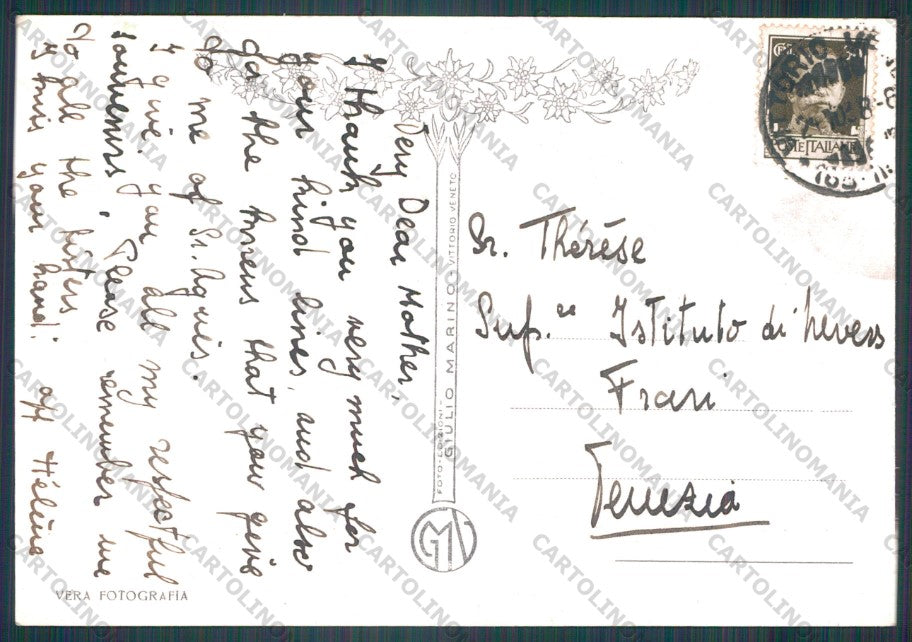 Very Dear Mother,
I thank you very much for
your kind lines, and also
for the news that you give
to me of Sr. Agnès.
I give you all my respectful
souvenirs, Please remember me
to all the sisters
I kiss your hand: aff Hélène
Sr. Thérèse
Sup.re Istituto di Nevers
Frari
Venezia
FOTO-EDIZIONI-
GIULIO MARINO - VITTORIO VENETO
GMV
VERA FOTOGRAFIA
POSTE ITALIANE
CARTOLINOMANIA